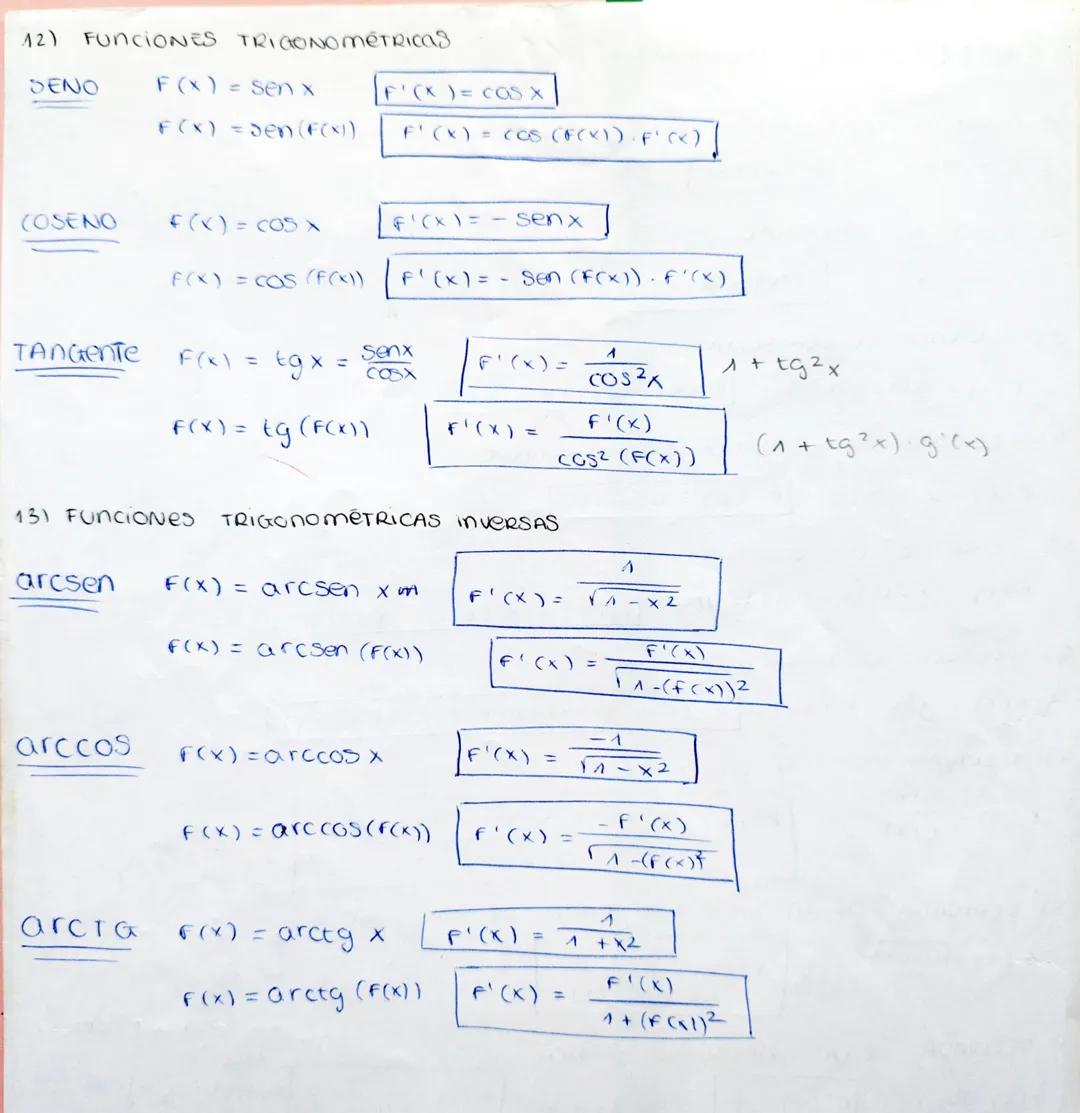 12) FUNCIONES TRIGONOMÉTRICAS
SENO F(x) = sen x F'(x) = cos x
F(x) = sen(F(x)) F'(x) = cos (F(x)) · F'(x)
COSENO F(x) = cos x F'(x) = - sen x
F(x) = cos (F(x)) F'(x) = - sen (F(x)) · F'(x)
TANGENTE F(x) = tg x = senx/cosx F'(x) = 1/cos²x 1 + tg²x
F(x) = tg (F(x)) F'(x) = F'(x)/cos² (F(x)) (1 + tg²x) · g'(x)
13) FUNCIONES TRIGONOMÉTRICAS INVERSAS
arcsen F(x) = arcsen x F'(x) = 1/√1 - x²
F(x) = arcsen (F(x)) F'(x) = F'(x)/√1 -(F(x))²
arccos F(x) = arccos x F'(x) = -1/√1 - x²
F(x) = arccos(F(x)) F'(x) = -F'(x)/√1 -(F(x)²
arcTG F(x) = arctg x F'(x) = 1/1 + x²
F(x) = arctg (F(x)) F'(x) = F'(x)/1 + (F(x))²